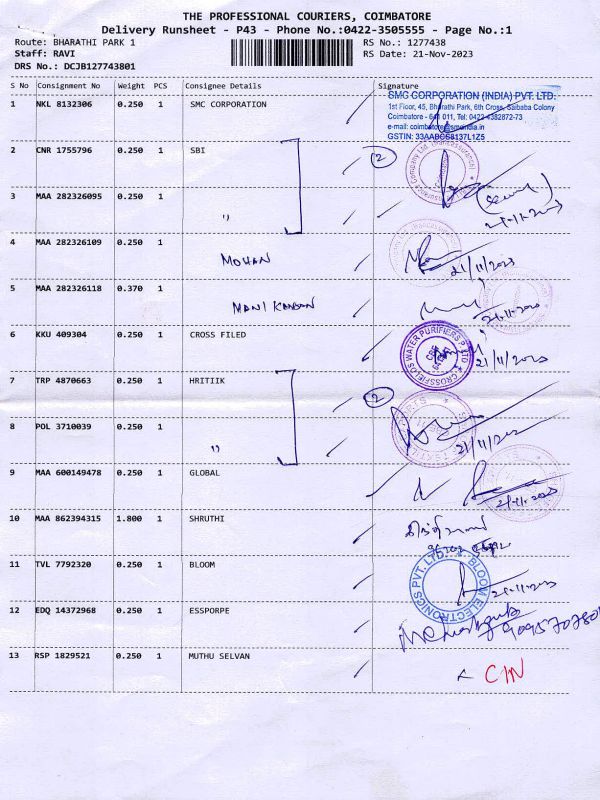 THE PROFESSIONAL COURIERS, COIMBATORE
Delivery Runsheet - P43 - Phone No.:0422-3505555 - Page No.:1
Route: BHARATHI PARK 1 RS No.: 1277438
Staff: RAVI RS Date: 21-Nov-2023
DRS No.: DCJB127743801
S No Consignment No Weight PCS Consignee Details Signature
1 NKL 8132306 0.250 1 SMC CORPORATION
SMC CORPORATION (INDIA) PVT. LTD.
1st Floor, 45, Bharathi Park, 6th Cross, Saibaba Colony
Coimbatore - 641 011, Tel: 0422-4382872-73
e-mail: coimbatore@smcindia.in
GSTIN: 33AABCS8137L1Z5
2 CNR 1755796 0.250 1 SBI 2
3 MAA 282326095 0.250 1 " 21-11-2023
4 MAA 282326109 0.250 1 MOHAN 21/11/2023
5 MAA 282326118 0.370 1 MANIKANDAN 21-11-2023
6 KKU 409304 0.250 1 CROSS FILED
CROSSFIELDS WATER PURIFIERS P LTD CBE
21/11/2023
7 TRP 4870663 0.250 1 HRITIIK 2
8 POL 3710039 0.250 1 " 21/11/202
9 MAA 600149478 0.250 1 GLOBAL 21-11-2023
10 MAA 862394315 1.800 1 SHRUTHI
11 TVL 7792320 0.250 1 BLOOM
BLOOM ELECTRONICS PVT. LTD.
21-11-2023
12 EDQ 14372968 0.250 1 ESSPORPE
13 RSP 1829521 0.250 1 MUTHU SELVAN C/N